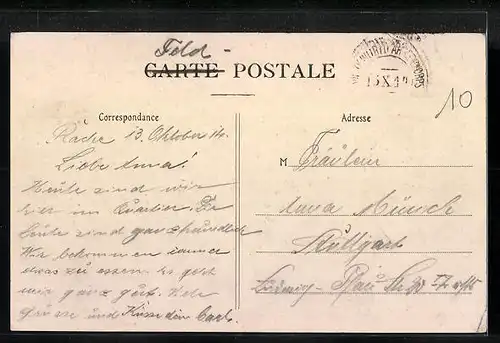 Feld-
CARTE POSTALE
15 X 14
10
Correspondance
Adresse
13. Oktober 14.
Liebe Anna!
Heute sind wir
im Quartier. Die
Leute sind ganz freundlich
Wir bekommen immer
etwas zu essen. Es geht
mir ganz gut. Viele
Grüsse und Küsse dein Carl.
M Fräulein
Anna Münsch
Stuttgart
Ludwig-Pfau Str.